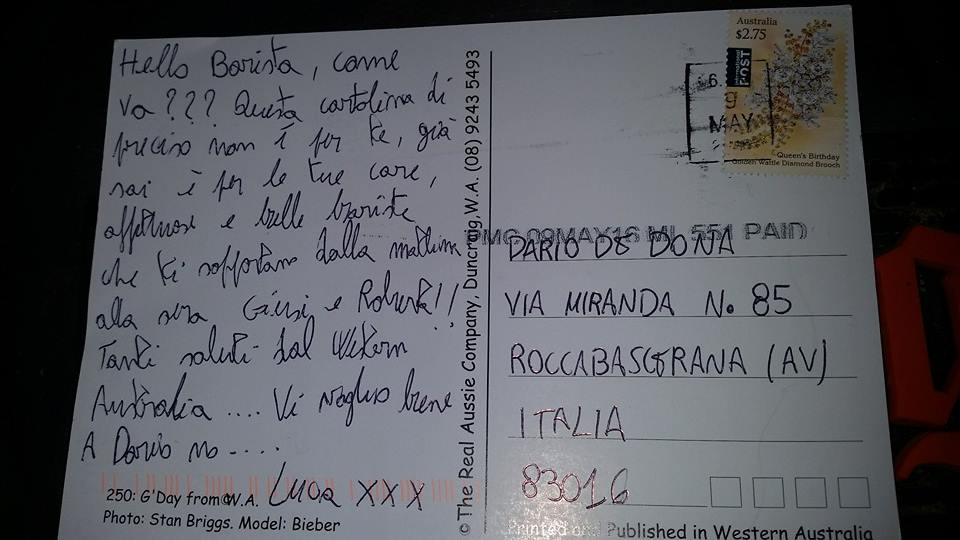 Hello Barista, come
va??? Questa cartolina di
preciso non è per te, già
sai è per le tue care,
affettuose e belle bariste
che ti sopportano dalla mattina
alla sera Giusi e Roberta!!
Tanti saluti dal Western
Australia .... Vi voglio bene
A Dario no ....
Luca XXX
250: G'Day from W.A.
Photo: Stan Briggs. Model: Bieber
© The Real Aussie Company, Duncraig, W.A. (08) 9243 5493
Australia
$2.75
International
POST
Queen's Birthday
Golden Wattle Diamond Brooch
9
MAY
PMC 09MAY16 ML 551 PAID
DARIO DE DONA
VIA MIRANDA No 85
ROCCABASCERANA (AV)
ITALIA
83016
Printed and Published in Western Australia